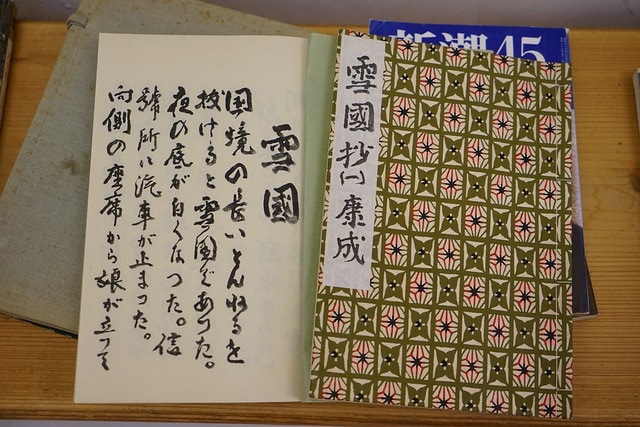 新潮45
雪國抄(一) 康成
雪國
国境の長いとんねるを
抜けると雪国であつた。
夜の底が白くなつた。信
號所に汽車が止まつた。
向側の座席から娘が立つて